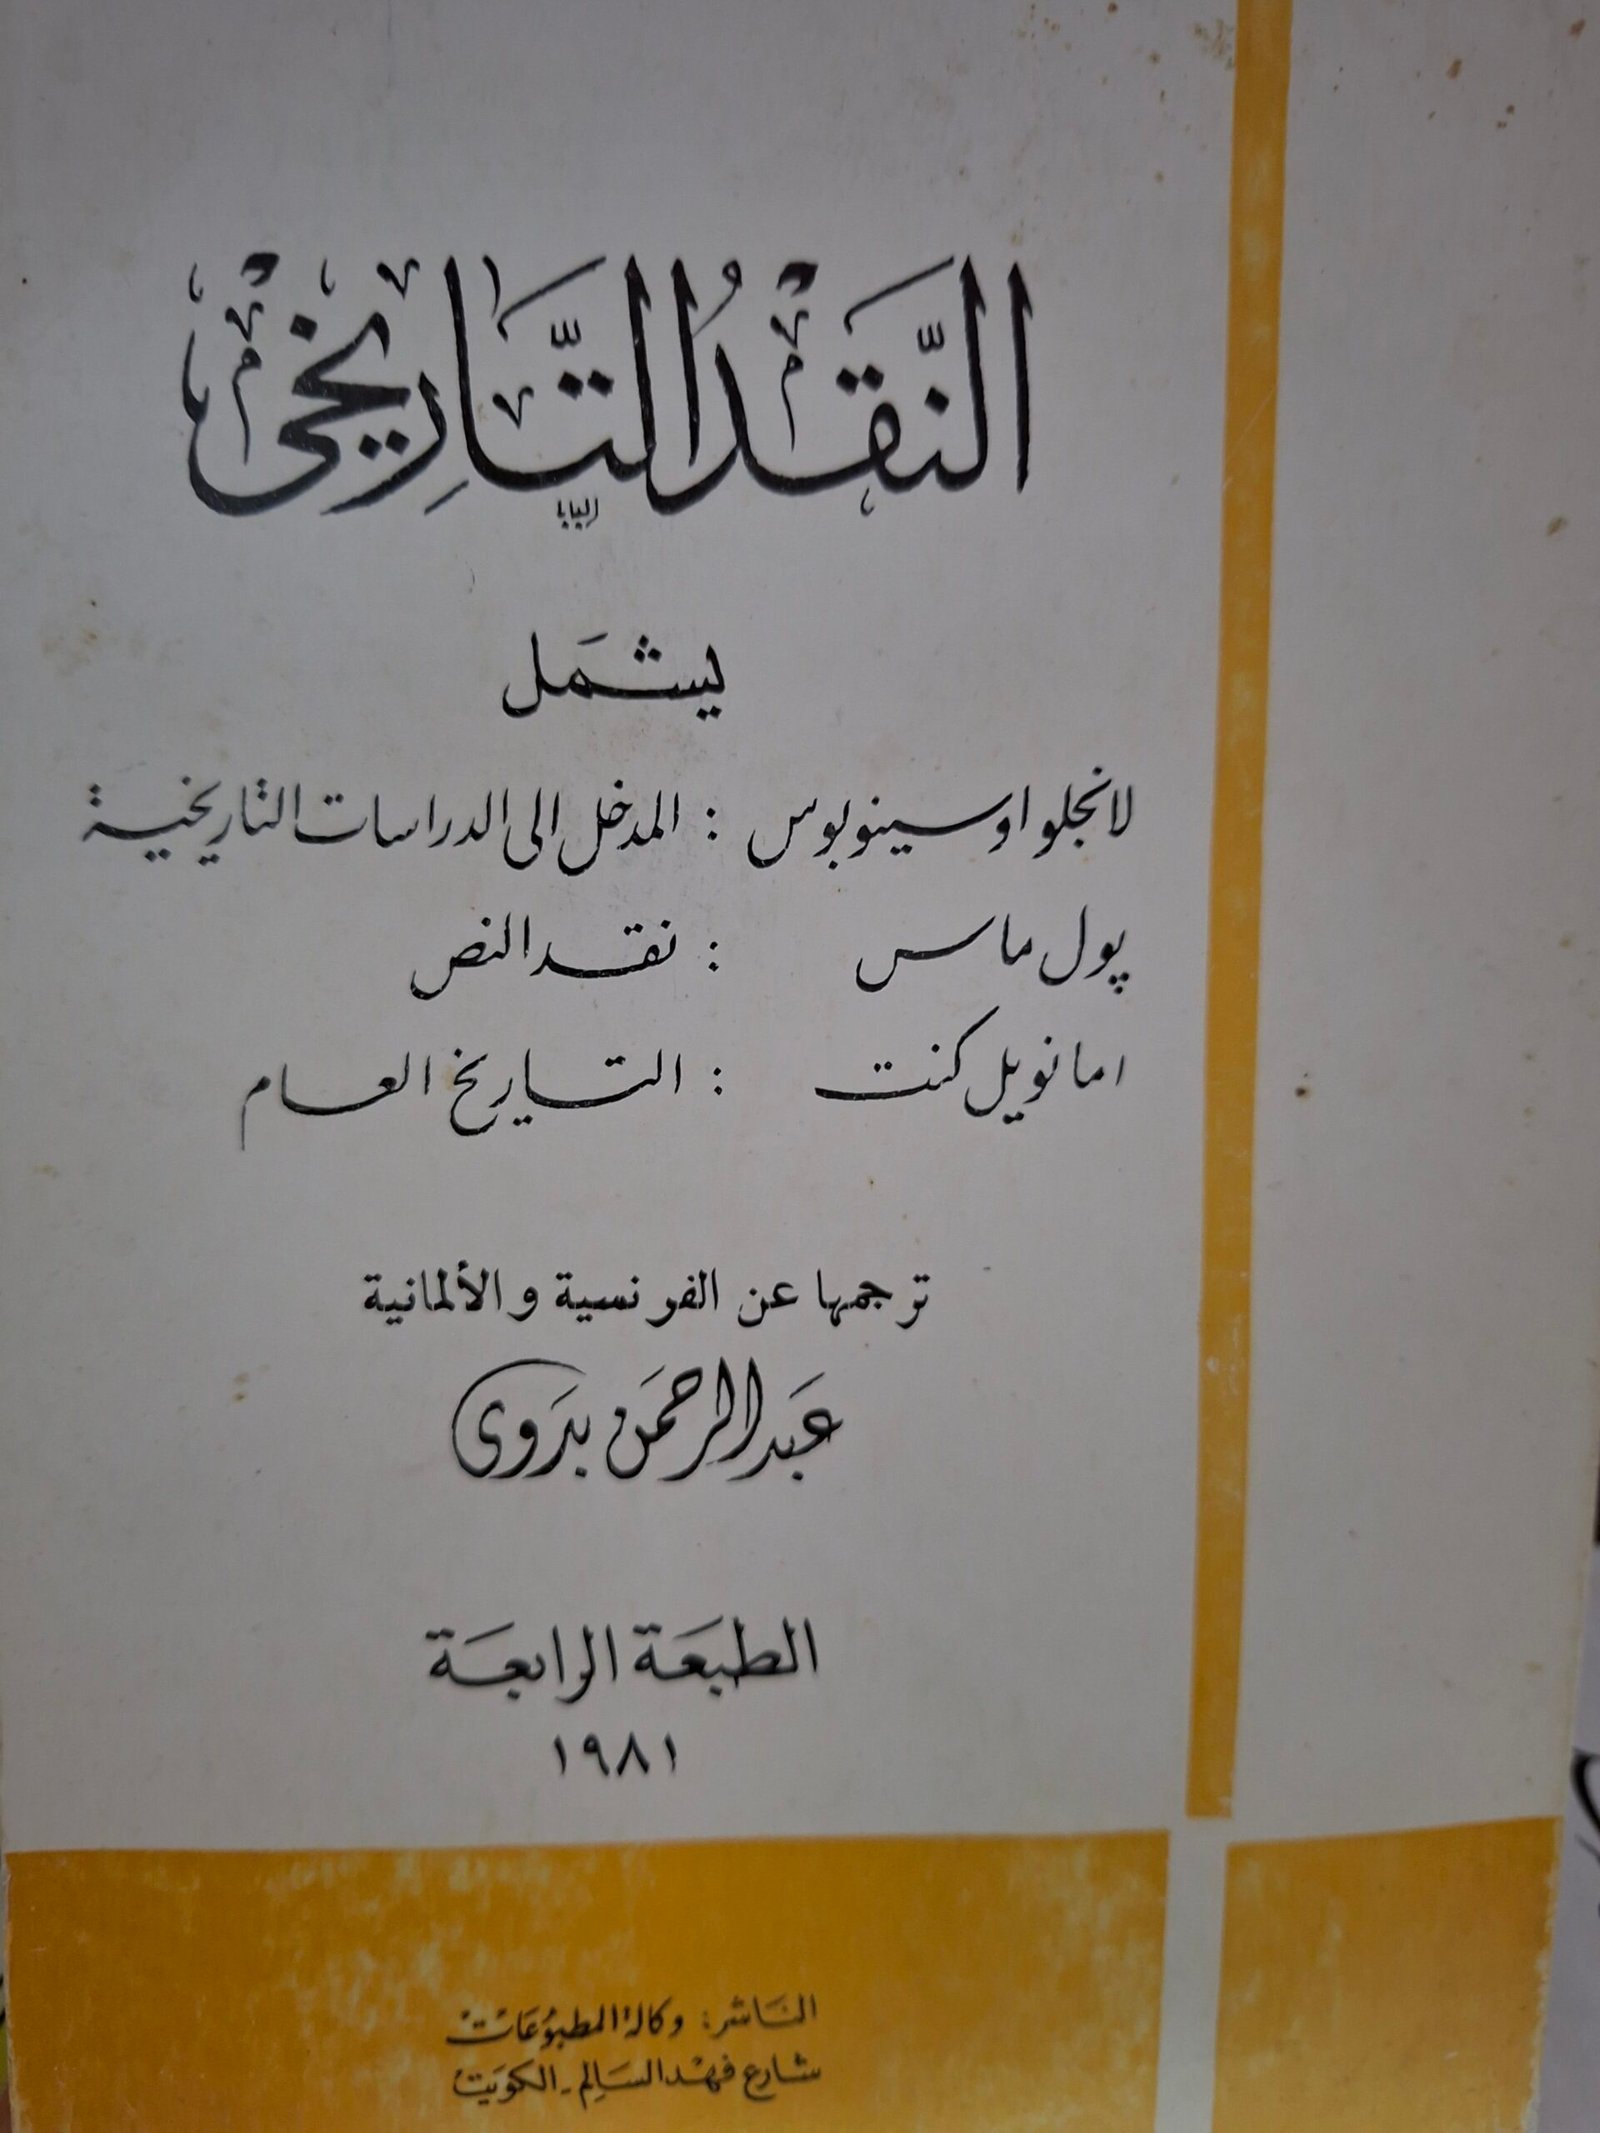 النَّقْدُ التَّارِيخْى
البابا
يشمَل
لانجلوا وسينوبوس : المدخل الى الدراسات التاريخية
پول ماس : نقد النص
امانويل كنت : التاريخ العام
ترجمها عن الفرنسية والألمانية
عَبد الرحمَن بدَوى
الطبعَة الرابعَة
١٩٨١
النَاشر: وكالة المطبوُعَاتْ
شارع فهْد السَالِم - الكوَيتْ